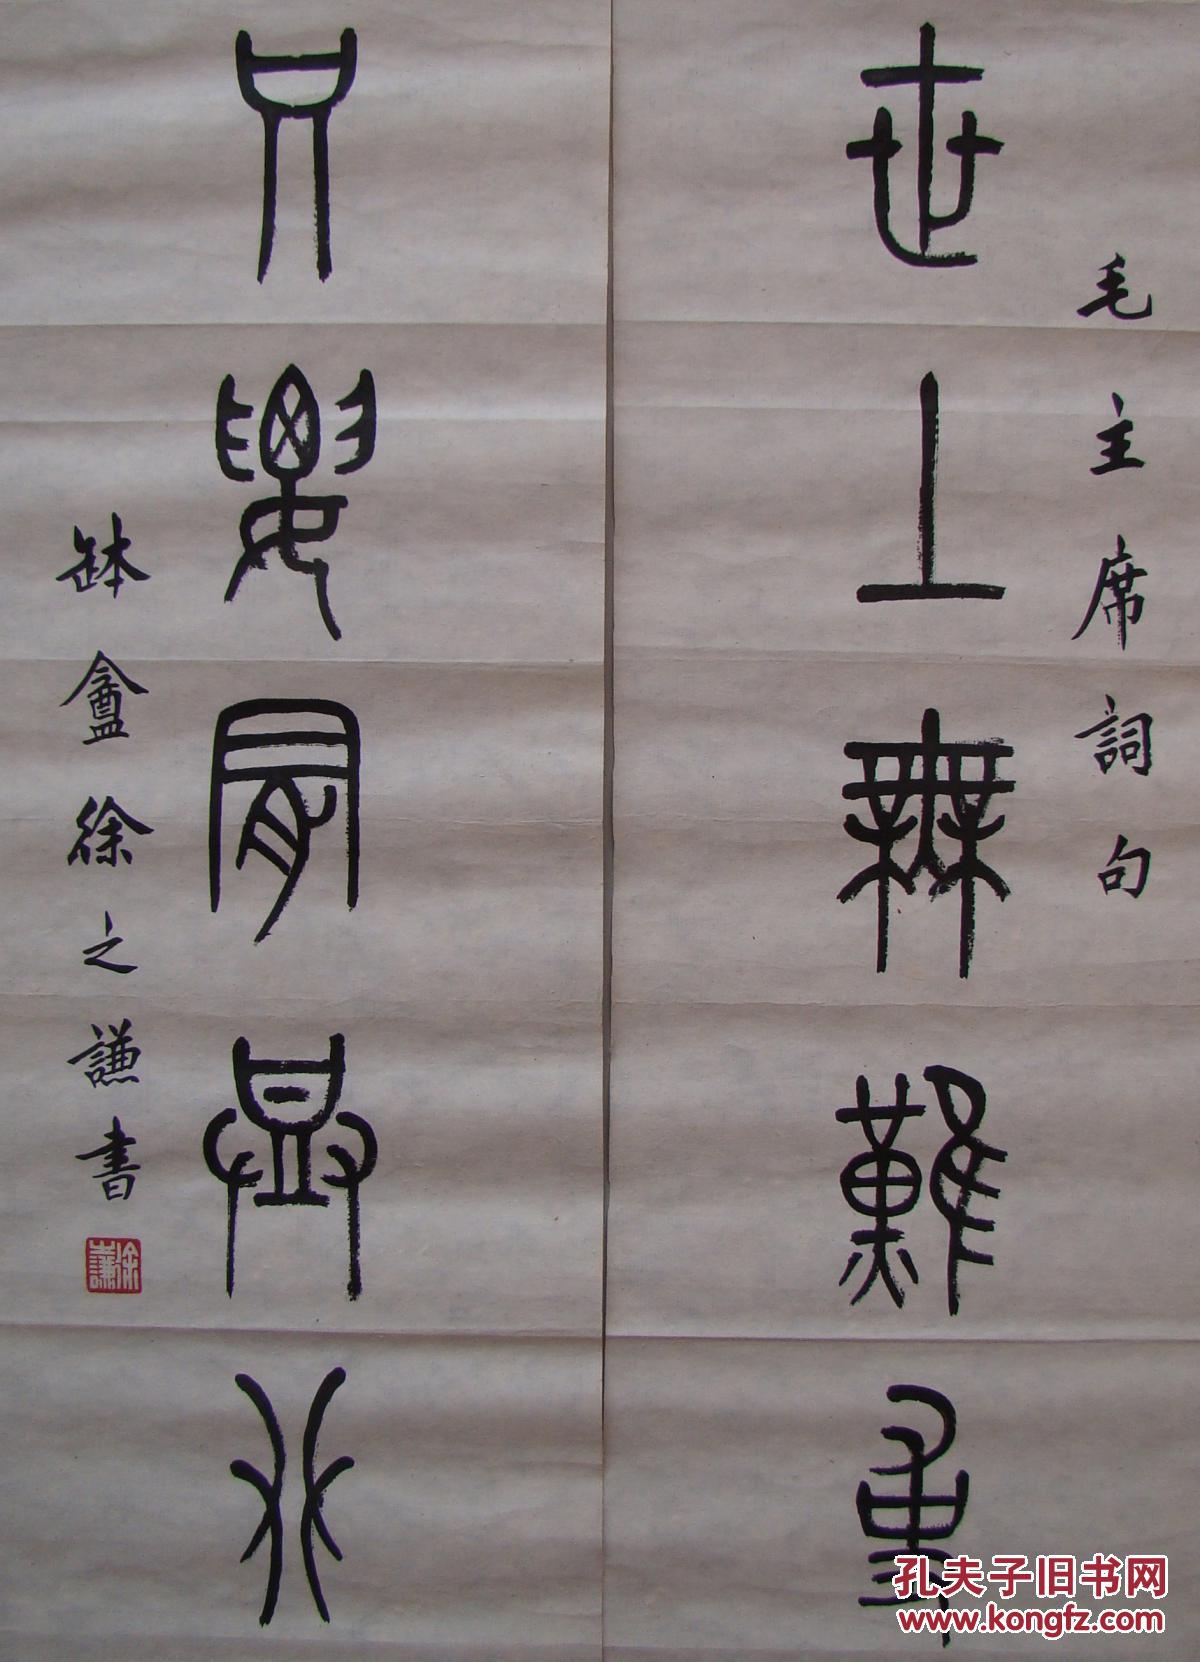 毛主席詞句
世上無難事
只要肯登攀
缽盦徐之謙書
徐之謙
孔夫子旧书网
www.kongfz.com